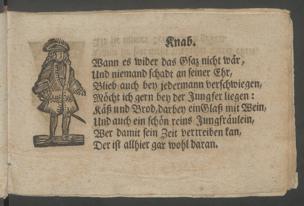 Knab.
Wann es wider das Gsaz nicht wär,
Und niemand schadt an seiner Ehr,
Blieb auch bey jedermann verschwiegen,
Möcht ich gern bey der Jungfer liegen:
Käß und Brod, darbey ein Glaß mit Wein,
Und auch ein schön reins Jungfräulein,
Wer damit sein Zeit vertreiben kan,
Der ist allhier gar wohl daran.